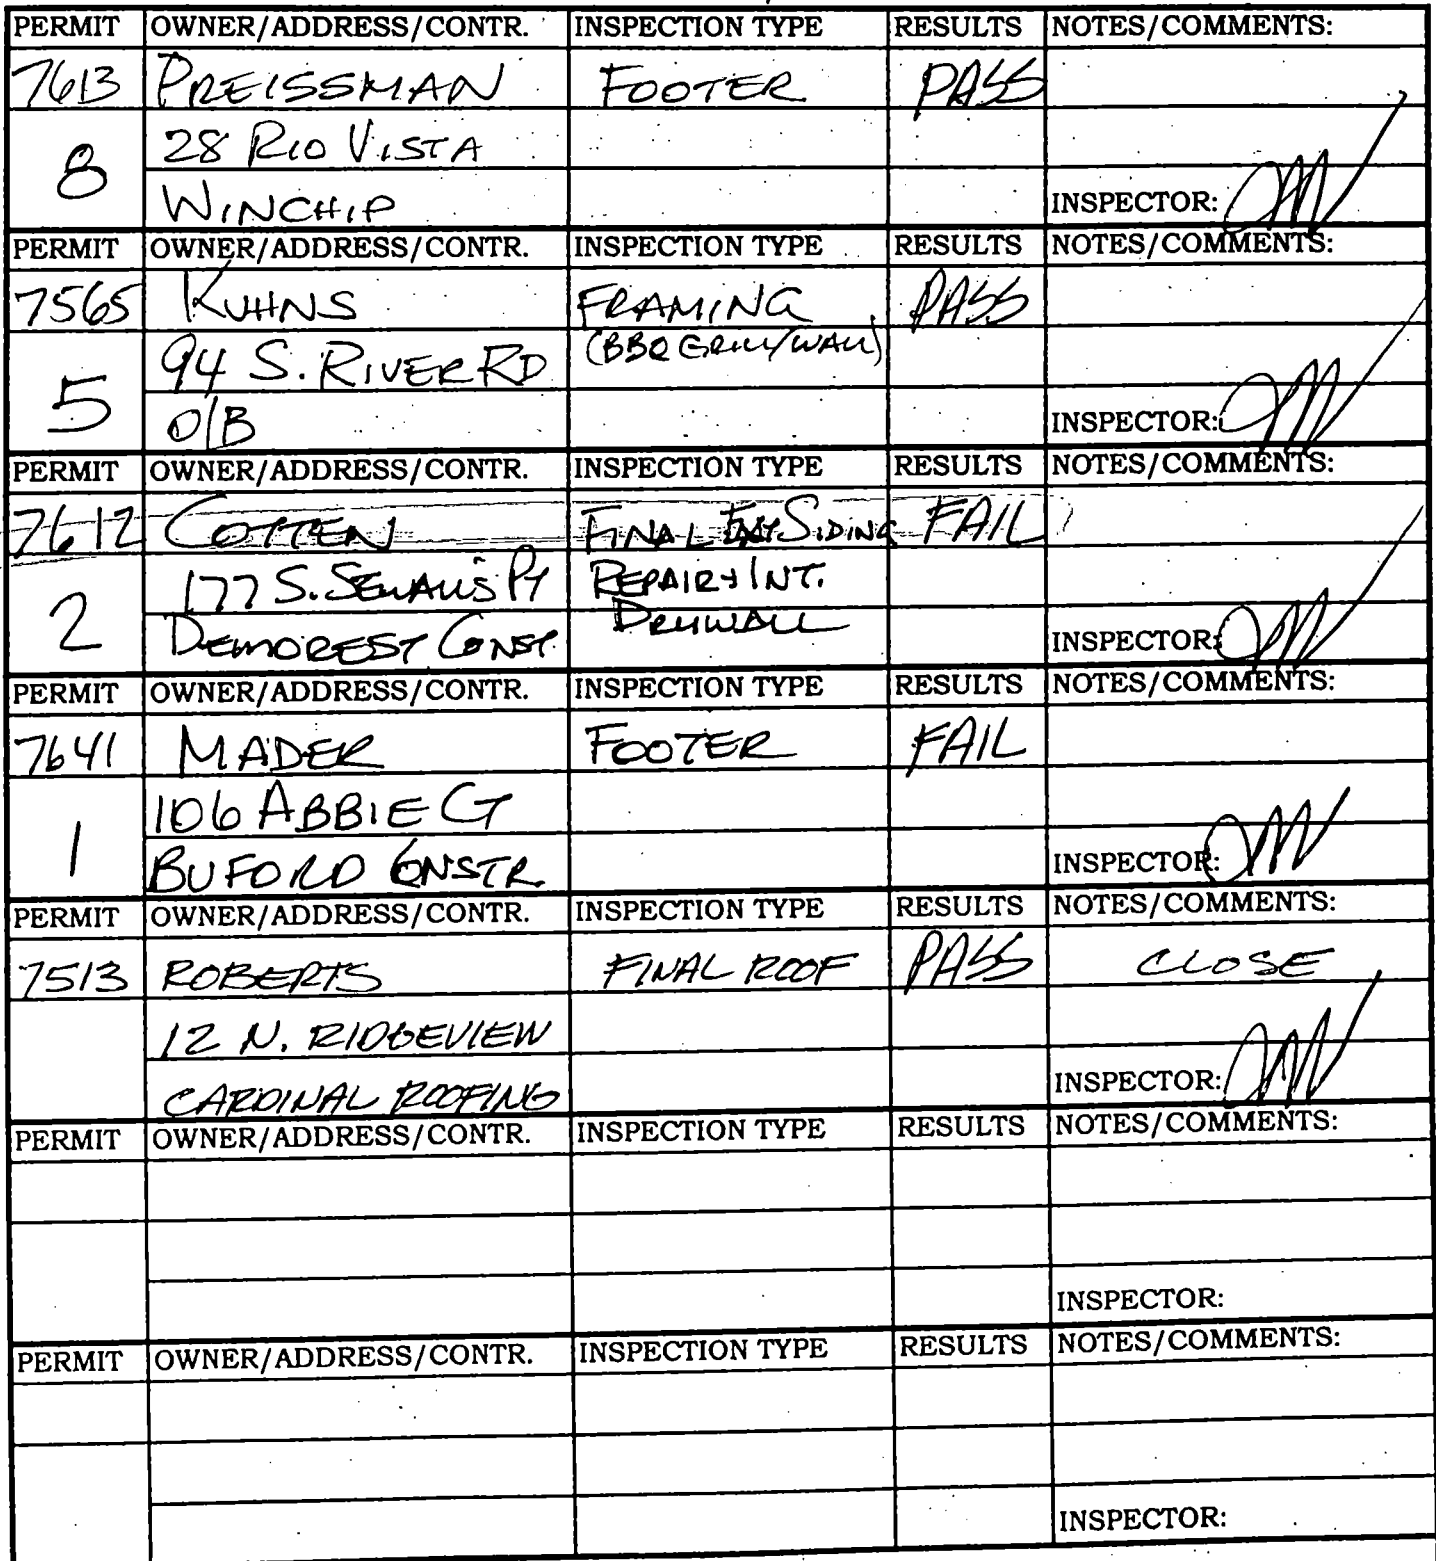 PERMIT OWNER/ADDRESS/CONTR. INSPECTION TYPE RESULTS NOTES/COMMENTS:
7613 PREISSMAN FOOTER PASS
8 28 RIO VISTA
WINCHIP INSPECTOR:
PERMIT OWNER/ADDRESS/CONTR. INSPECTION TYPE RESULTS NOTES/COMMENTS:
7565 KUHNS FRAMING PASS
5 94 S. RIVER RD (BBQ GRILL/WALL)
O/B INSPECTOR:
PERMIT OWNER/ADDRESS/CONTR. INSPECTION TYPE RESULTS NOTES/COMMENTS:
7612 COTTEN FINAL EXT SIDING FAIL
2 177 S. SEWALL'S PT REPAIR + INT.
DEMOREST CONST. DRYWALL INSPECTOR:
PERMIT OWNER/ADDRESS/CONTR. INSPECTION TYPE RESULTS NOTES/COMMENTS:
7641 MADER FOOTER FAIL
1 106 ABBIE CT
BUFORD CONSTR. INSPECTOR:
PERMIT OWNER/ADDRESS/CONTR. INSPECTION TYPE RESULTS NOTES/COMMENTS:
7513 ROBERTS FINAL ROOF PASS CLOSE
12 N. RIDGEVIEW
CARDINAL ROOFING INSPECTOR:
PERMIT OWNER/ADDRESS/CONTR. INSPECTION TYPE RESULTS NOTES/COMMENTS:
INSPECTOR:
PERMIT OWNER/ADDRESS/CONTR. INSPECTION TYPE RESULTS NOTES/COMMENTS:
INSPECTOR: